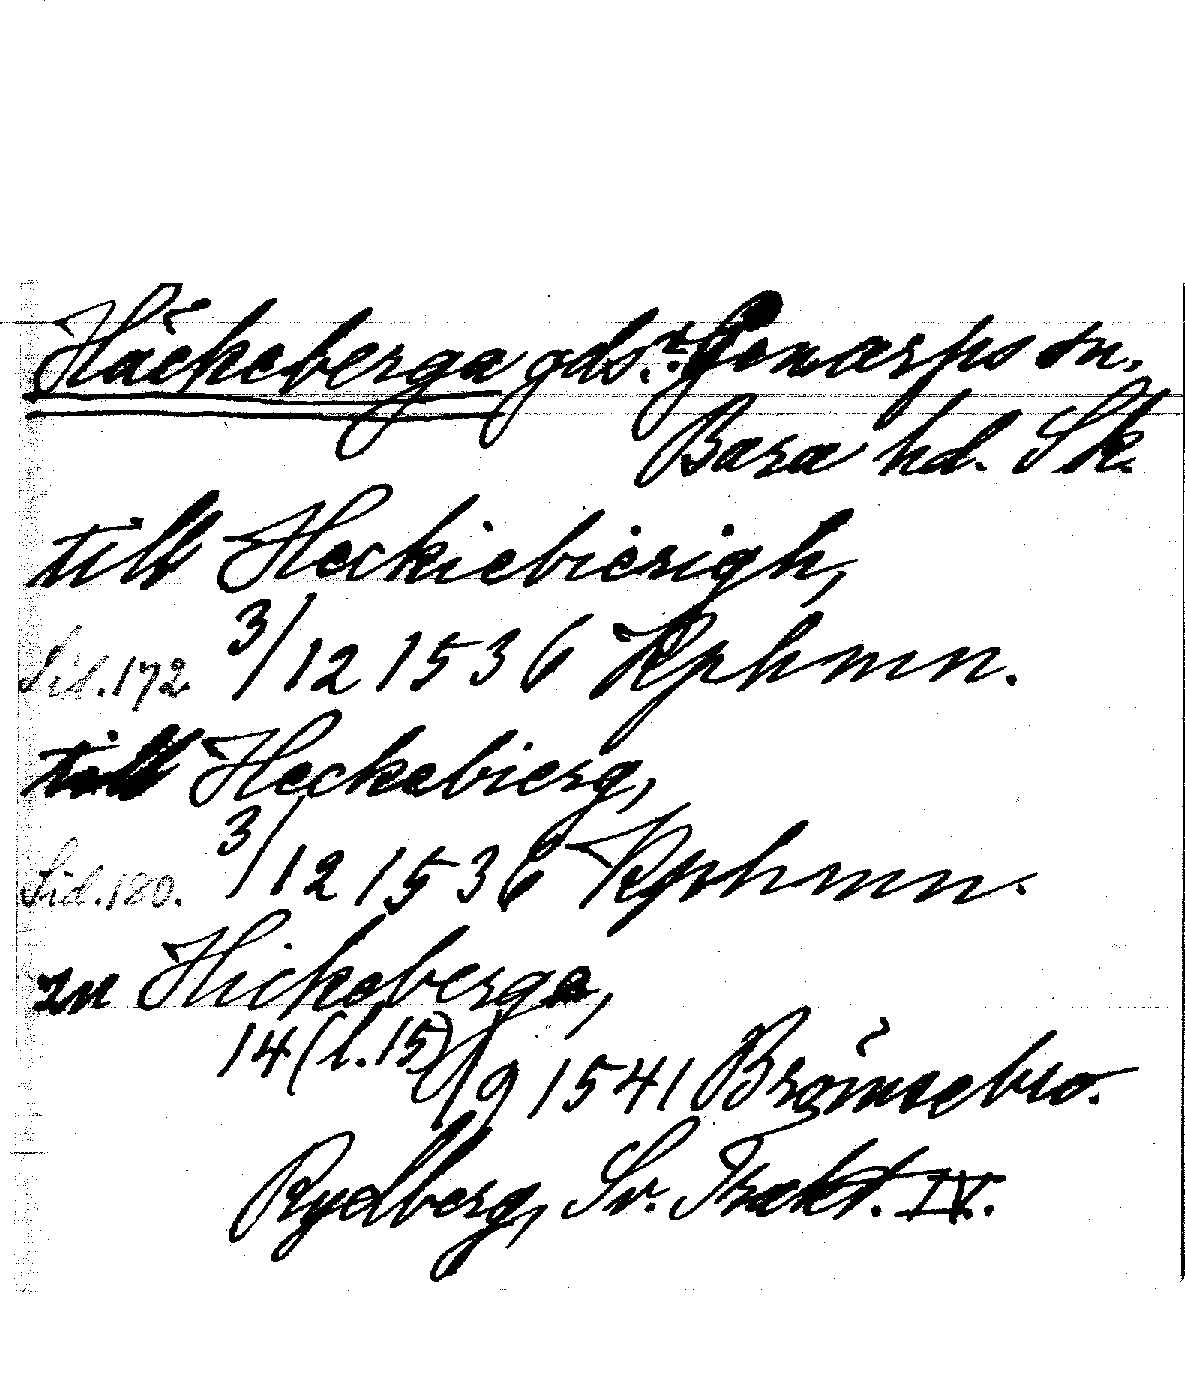 Häckeberga gds. Genarps sn.
Bara hd. Sk.
till Heckiebierigh,
Sid. 172. 3/12 1536 Kphmn.
till Heckebierg,
Sid. 180. 3/12 1536 Kphmn.
zu Hickeberga,
14 (l. 15)/9 1541 Brömsebro.
Rydberg, Sv. Trakt. IV.